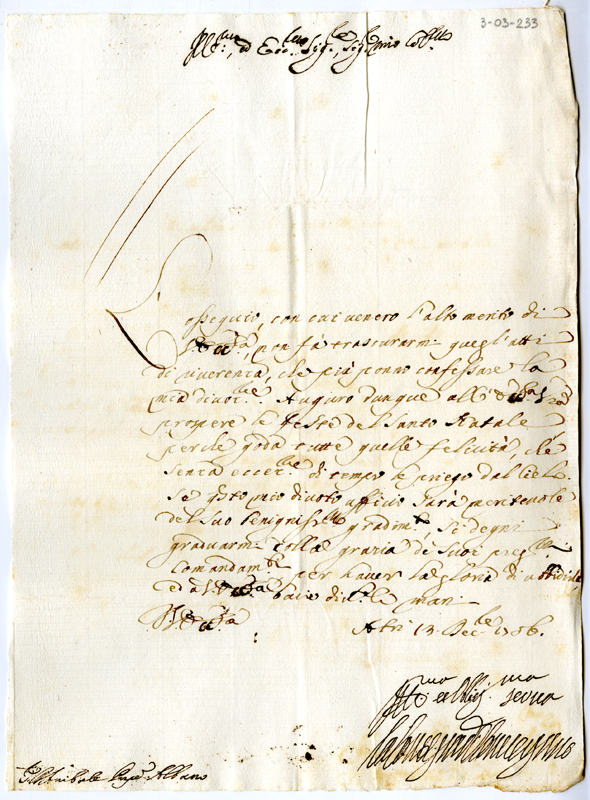 3-03-233
Ill.mo, ed Ecc.mo Sig.re, Sig.re mio Col.mo
L'ossequio, con cui venero l'alto merito di
V. Ecc.za, non fà trascurarmi quegl'atti
di riverenza, che più ponno confessare la
mia divoz.ne. Auguro dunque all'Ecc.za V.ra
prospere le Feste del Santo Natale
perche goda tutte quelle felicità, che
senza eccez.ne di tempo le priego dal Cielo.
Se q.sto mio divoto ufficio sarà meritevole
del suo benigniss.mo gradim.to, si degni
graduarmi colla grazia de suoi preg.mi
Comandam.ti per haver la gloria di ubbidirla
ed à V. Ecc.za bacio div.te le mani
V. Ecc.za
Atri 13. Dec.re 1706.
ed Oblig.ma serva
Annibale Albano